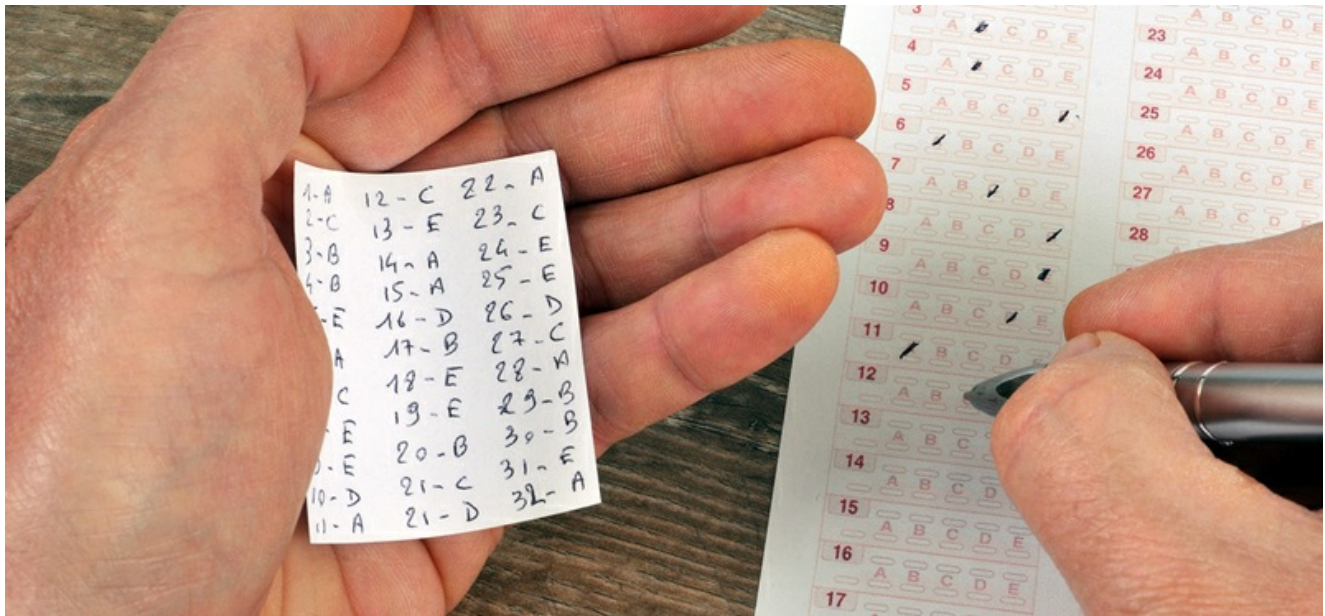 1-A
2-C
3-B
4-B
-E
A
C
-E
-E
10-D
11-A
12-C
13-E
14-A
15-A
16-D
17-B
18-E
19-E
20-B
21-C
21-D
22-A
23-C
24-E
25-E
26-D
27-C
28-A
29-B
30-B
31-E
32-A
3
A C D E
4
A C D E
5
A B C D
6
B C D E
7
A B D E
8
A B C D
9
A B C D
10
A B C E
11
B C D E
12
A B
13
A B C D
14
A B C D
15
A B C D E
16
A B C D E
17
A B C D E
23
A B C D E
24
A B C D E
25
A B C D E
26
A B C D E
27
A B C D E
28